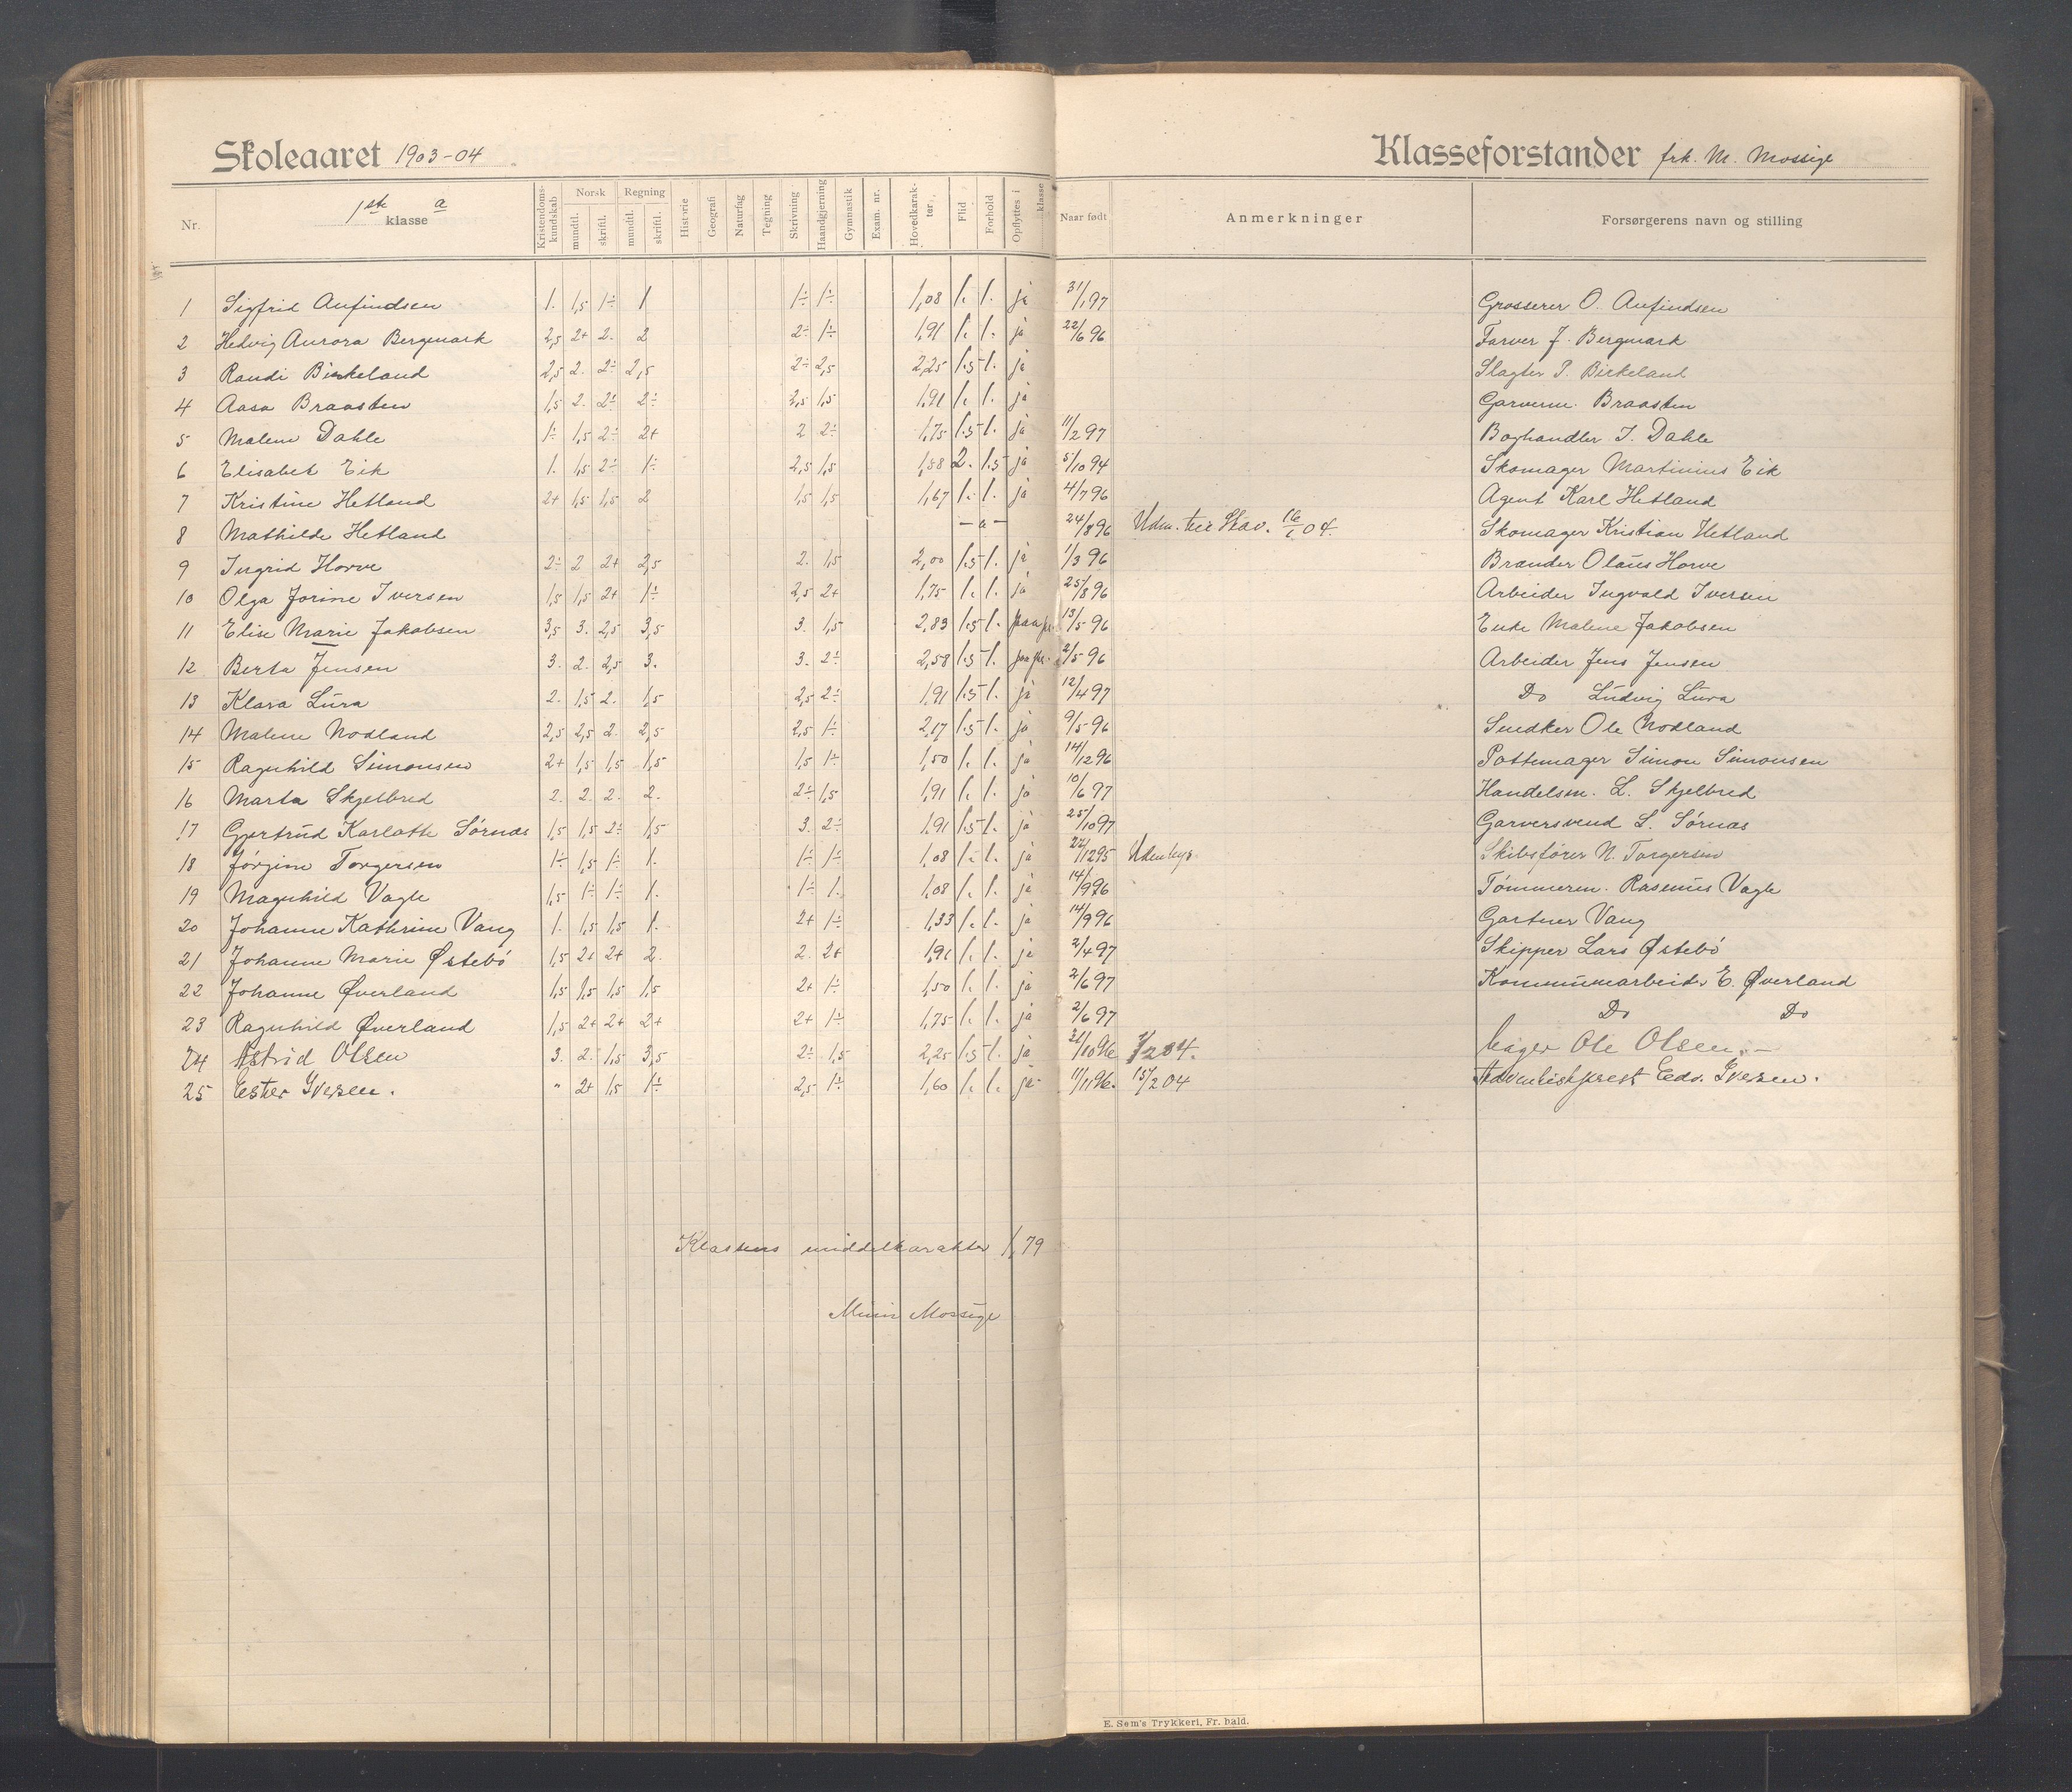 Skoleaaret 1903-04
Klasseforstander frk. M. Mossige
Nr. 1ste klasse a Kristendomskundskab Norsk mundtl. skriftl. Regning mundtl. skriftl. Historie Geografi Naturfag Tegning Skrivning Haandgjerning Gymnastik Exam. nr. Hovedkarakter. Flid Forhold Opflyttes i klasse Naar født Anmerkninger Forsørgerens navn og stilling
1 Sigfrid Anfindsen 1. 1,5 1÷ 1 1÷ 1÷ 1,08 1. 1. ja 31/1 97 Grosserer O. Anfindsen
2 Hedvig Aurora Bergmark 2,5 2+ 2. 2 2÷ 1÷ 1,91 1. 1. ja 22/6 96 Farver J. Bergmark
3 Randi Birkeland 2,5 2. 2÷ 2,5 2÷ 2,5 2,25 1.5 1. ja Slagter P. Birkeland
4 Aasa Braasten 1,5 2. 2÷ 2÷ 2,5 1,5 1,91 1. 1. ja Garverm. Braasten
5 Malene Dahle 1÷ 1,5 2÷ 2+ 2 2÷ 1,75 1.5 1. ja 11/2 97 Boghandler J. Dahle
6 Elisabet Eik 1. 1,5 2÷ 1÷ 2,5 1,5 1,58 2. 1.5 ja 5/10 94 Skomager Martinius Eik
7 Kristine Hetland 2+ 1,5 1,5 2 1,5 1,5 1,67 1. 1. ja 4/7 96 Agent Karl Hetland
8 Mathilde Hetland — a — 24/8 96 Udm. til Stav. 16/1 04. Skomager Kristian Hetland
9 Ingrid Horve 2÷ 2 2+ 2,5 2. 1,5 2,00 1.5 1. ja 1/3 96 Brander Olaus Horve
10 Olga Jorine Iversen 1,5 1,5 2+ 1÷ 2,5 2+ 1,75 1. 1. ja 25/8 96 Arbeider Ingvald Iversen
11 Elise Marie Jakobsen 3,5 3. 2,5 3,5 3. 1,5 2,83 1.5 1. paa pr. 13/5 96 Enke Malene Jakobsen
12 Berta Jensen 3. 2. 2,5 3. 3. 2÷ 2,58 1.5 1. paa pr. 2/5 96 Arbeider Jens Jensen
13 Klara Lura 2. 1,5 2. 1,5 2,5 2÷ 1,91 1.5 1. ja 12/4 97 Do Ludvig Lura
14 Malene Nodland 2,5 2,5 2. 2,5 2,5 1÷ 2,17 1.5 1. ja 9/5 96 Snedker Ole Nodland
15 Ragnhild Simonsen 2+ 1,5 1,5 1,5 1,5 1÷ 1,50 1. 1. ja 14/12 96 Pottemager Simon Simonsen
16 Marta Skjelbred 2. 2. 2. 2. 2÷ 1,5 1,91 1. 1. ja 10/6 97 Handelsm. L. Skjelbred
17 Gjertrud Karlotte Sørnas 1,5 1,5 2÷ 1,5 3. 2÷ 1,91 1.5 1. ja 25/10 97 Garversvend L. Sørnas
18 Jørgine Torgersen 1÷ 1,5 1÷ 1. 1÷ 1÷ 1,08 1. 1. ja 22/12 95 Udenbys Skibsfører N. Torgersen
19 Magnhild Vagle 1,5 1÷ 1÷ 1. 1÷ 1. 1,08 1. 1. ja 14/9 96 Tømmerm. Rasmus Vagle
20 Johanne Kathrine Vang 1. 1,5 1,5 1. 2+ 1÷ 1,33 1. 1. ja 14/9 96 Gartner Vang
21 Johanne Marie Østebö 1,5 2+ 2+ 2. 2. 2+ 1,91 1. 1. ja 2/4 97 Skipper Lars Østebö
22 Johanne Øverland 1,5 1,5 1,5 1,5 2+ 1÷ 1,50 1. 1. ja 2/6 97 Kommunearbeider E. Øverland
23 Ragnhild Øverland 1,5 2+ 2+ 2+ 2+ 1÷ 1,75 1. 1. ja 2/6 97 Do Do
24 Astrid Olsen 3. 2. 1,5 3,5 2÷ 1,5 2,25 1.5 1. ja 31/10 96 1/2 04. Bager Ole Olsen. —
25 Ester Iversen. " 2+ 1,5 1÷ 2,5 1÷ 1,60 1. 1. ja 11/11 96. 15/2 04 Adventistprest Edv. Iversen.
Klassens middelkarakter 1,79
Mossige
E. Sem's Trykkeri, Fr. hald.